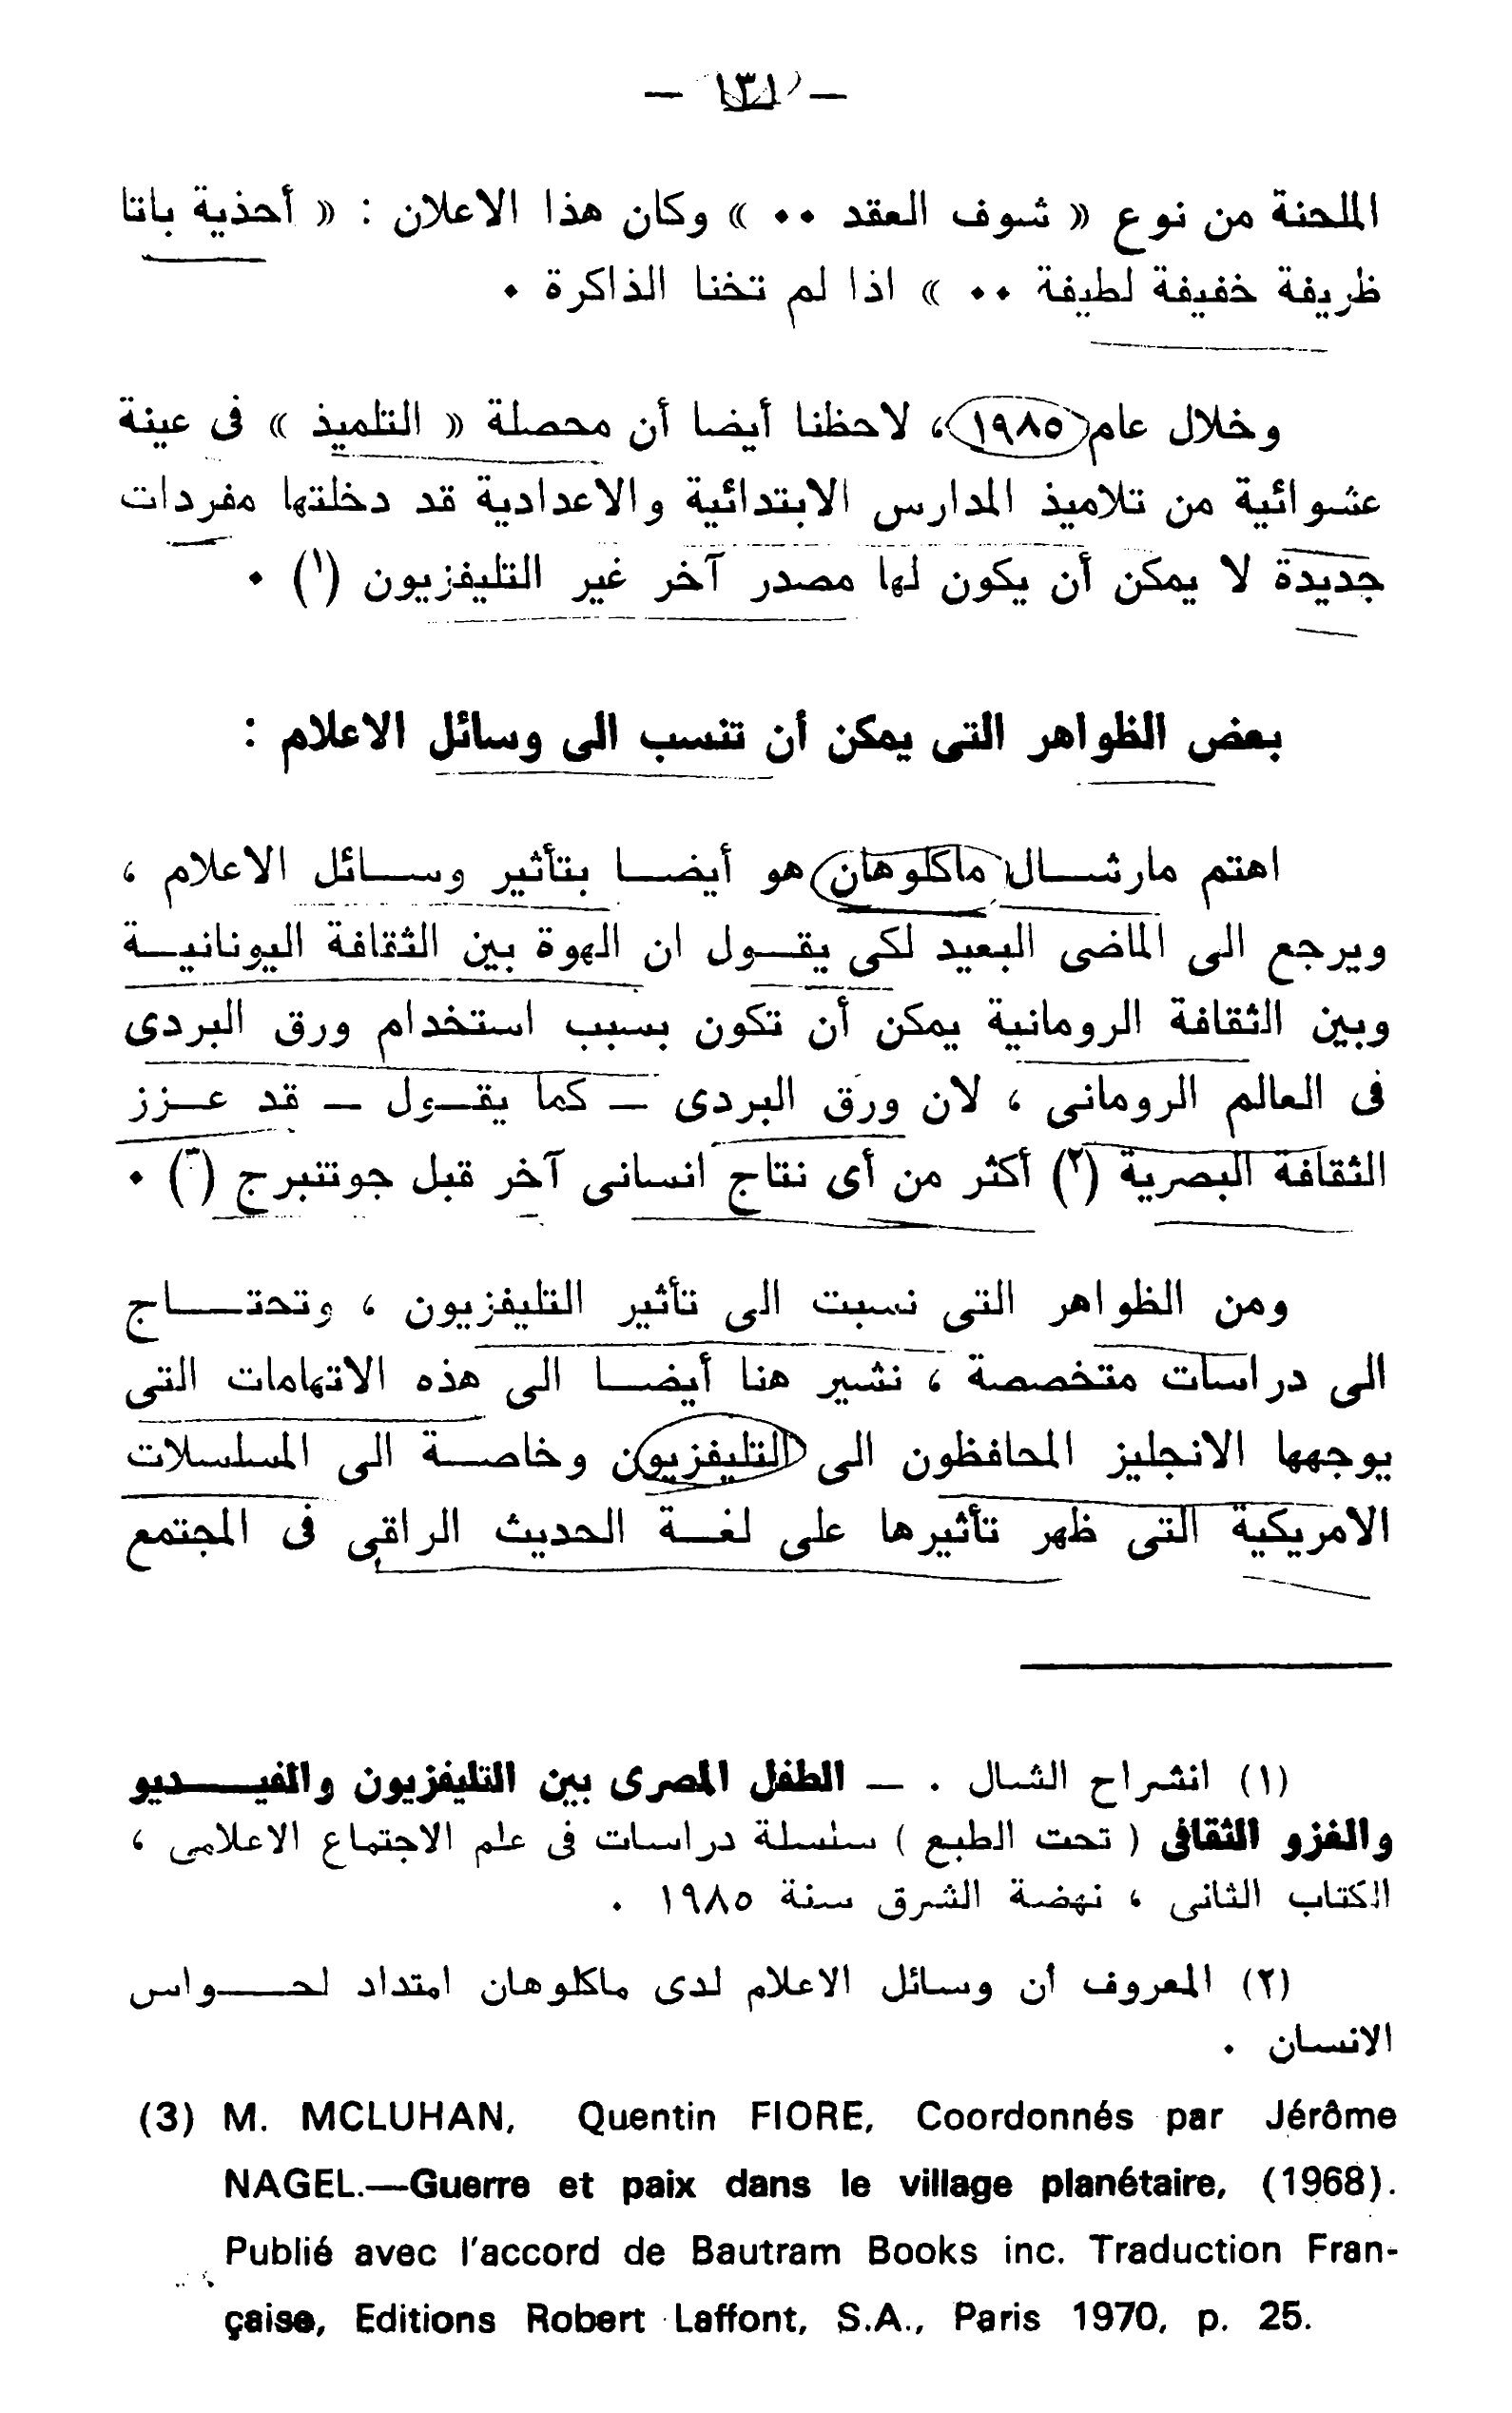 — ١٣١ —
الملحنة من نوع « شوف العقد ٠٠ » وكان هذا الاعلان : « أحذية باتا
ظريفة خفيفة لطيفة ٠٠ » اذا لم تخنا الذاكرة ٠
وخلال عام ١٩٨٥ ، لاحظنا أيضا أن محصلة « التلميذ » فى عينة
عشوائية من تلاميذ المدارس الابتدائية والاعدادية قد دخلتها مفردات
جديدة لا يمكن أن يكون لها مصدر آخر غير التليفزيون (١) ٠
بعض الظواهر التى يمكن أن تنسب الى وسائل الاعلام :
اهتم مارشال ماكلوهان هو أيضا بتأثير وسائل الاعلام ،
ويرجع الى الماضى البعيد لكى يقول ان الهوة بين الثقافة اليونانية
وبين الثقافة الرومانية يمكن أن تكون بسبب استخدام ورق البردى
فى العالم الرومانى ، لان ورق البردى — كما يقول — قد عزز
الثقافة البصرية (٢) أكثر من أى نتاج انسانى آخر قبل جوتنبرج (٣) ٠
ومن الظواهر التى نسبت الى تأثير التليفزيون ، وتحتاج
الى دراسات متخصصة ، نشير هنا أيضا الى هذه الاتهامات التى
يوجهها الانجليز المحافظون الى التليفزيون وخاصة الى المسلسلات
الامريكية التى ظهر تأثيرها على لغة الحديث الراقى فى المجتمع
(١) انشراح الشال . — الطفل المصرى بين التليفزيون والفيديو
والغزو الثقافى ( تحت الطبع ) سلسلة دراسات فى علم الاجتماع الاعلامى ،
الكتاب الثانى ، نهضة الشرق سنة ١٩٨٥ .
(٢) المعروف أن وسائل الاعلام لدى ماكلوهان امتداد لحواس
الانسان .
(3) M. MCLUHAN, Quentin FIORE, Coordonnés par Jérôme
NAGEL.—Guerre et paix dans le village planétaire, (1968).
Publié avec l'accord de Bautram Books inc. Traduction Fran-
çaise, Editions Robert Laffont, S.A., Paris 1970, p. 25.